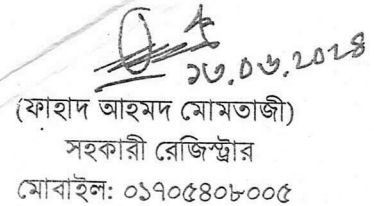 ১৩.০৬.২০২৪
(ফাহাদ আহমদ মোমতাজী)
সহকারী রেজিস্ট্রার
মোবাইল: ০১৭০৫৪০৮০০৫